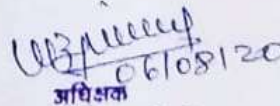 06/08/20
अधिक्षक